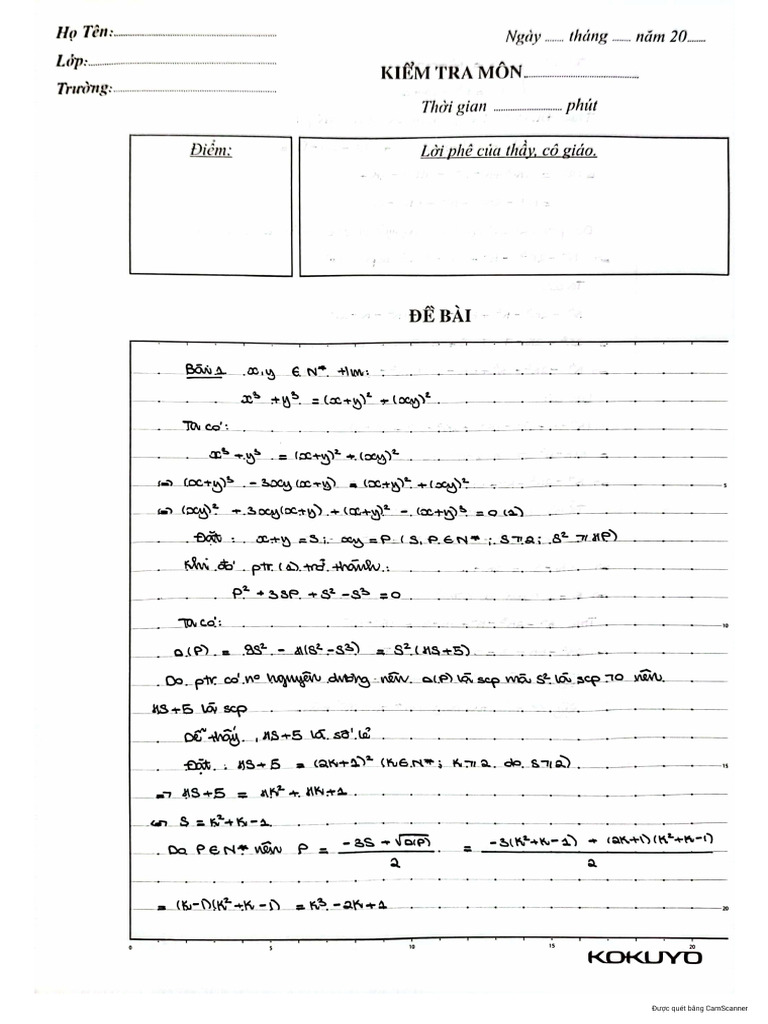 Họ Tên:
Ngày ...... tháng ...... năm 20......
Lớp:
KIỂM TRA MÔN
Trường:
Thời gian ...................... phút
Điểm:
Lời phê của thầy, cô giáo.
ĐỀ BÀI
Bài 1 x,y ∈ N* tìm:
x³ + y³ = (x+y)² + (xy)²
Ta có:
x³ + y³ = (x+y)² + (xy)²
⇔ (x+y)³ - 3xy(x+y) = (x+y)² + (xy)²
⇔ (xy)² + 3xy(x+y) + (x+y)² - (x+y)³ = 0 (1)
5
Đặt: x+y = S; xy = P (S, P ∈ N*; S ≥ 2; S² ≥ 4P)
Khi đó ptr (1) trở thành:
P² + 3SP + S² - S³ = 0
Ta có:
10
Δ(P) = 9S² - 4(S² - S³) = S²(4S+5)
Do ptr có no nguyên dương nên Δ(P) là scp mà S² là scp > 0 nên
4S+5 là scp
Dễ thấy, 4S+5 là số lẻ
Đặt: 4S+5 = (2k+1)² (k ∈ N*; k ≥ 2 do S ≥ 2)
15
⇒ 4S+5 = 4k² + 4k+1
⇔ S = k² + k - 1
Do P ∈ N* nên P = (-3S + √Δ(P))/2 = (-3(k²+k-1) + (2k+1)(k²+k-1))/2
= (k-1)(k²+k-1) = k³ - 2k+1
20
0 5 10 15 20
KOKUYO
Được quét bằng CamScanner